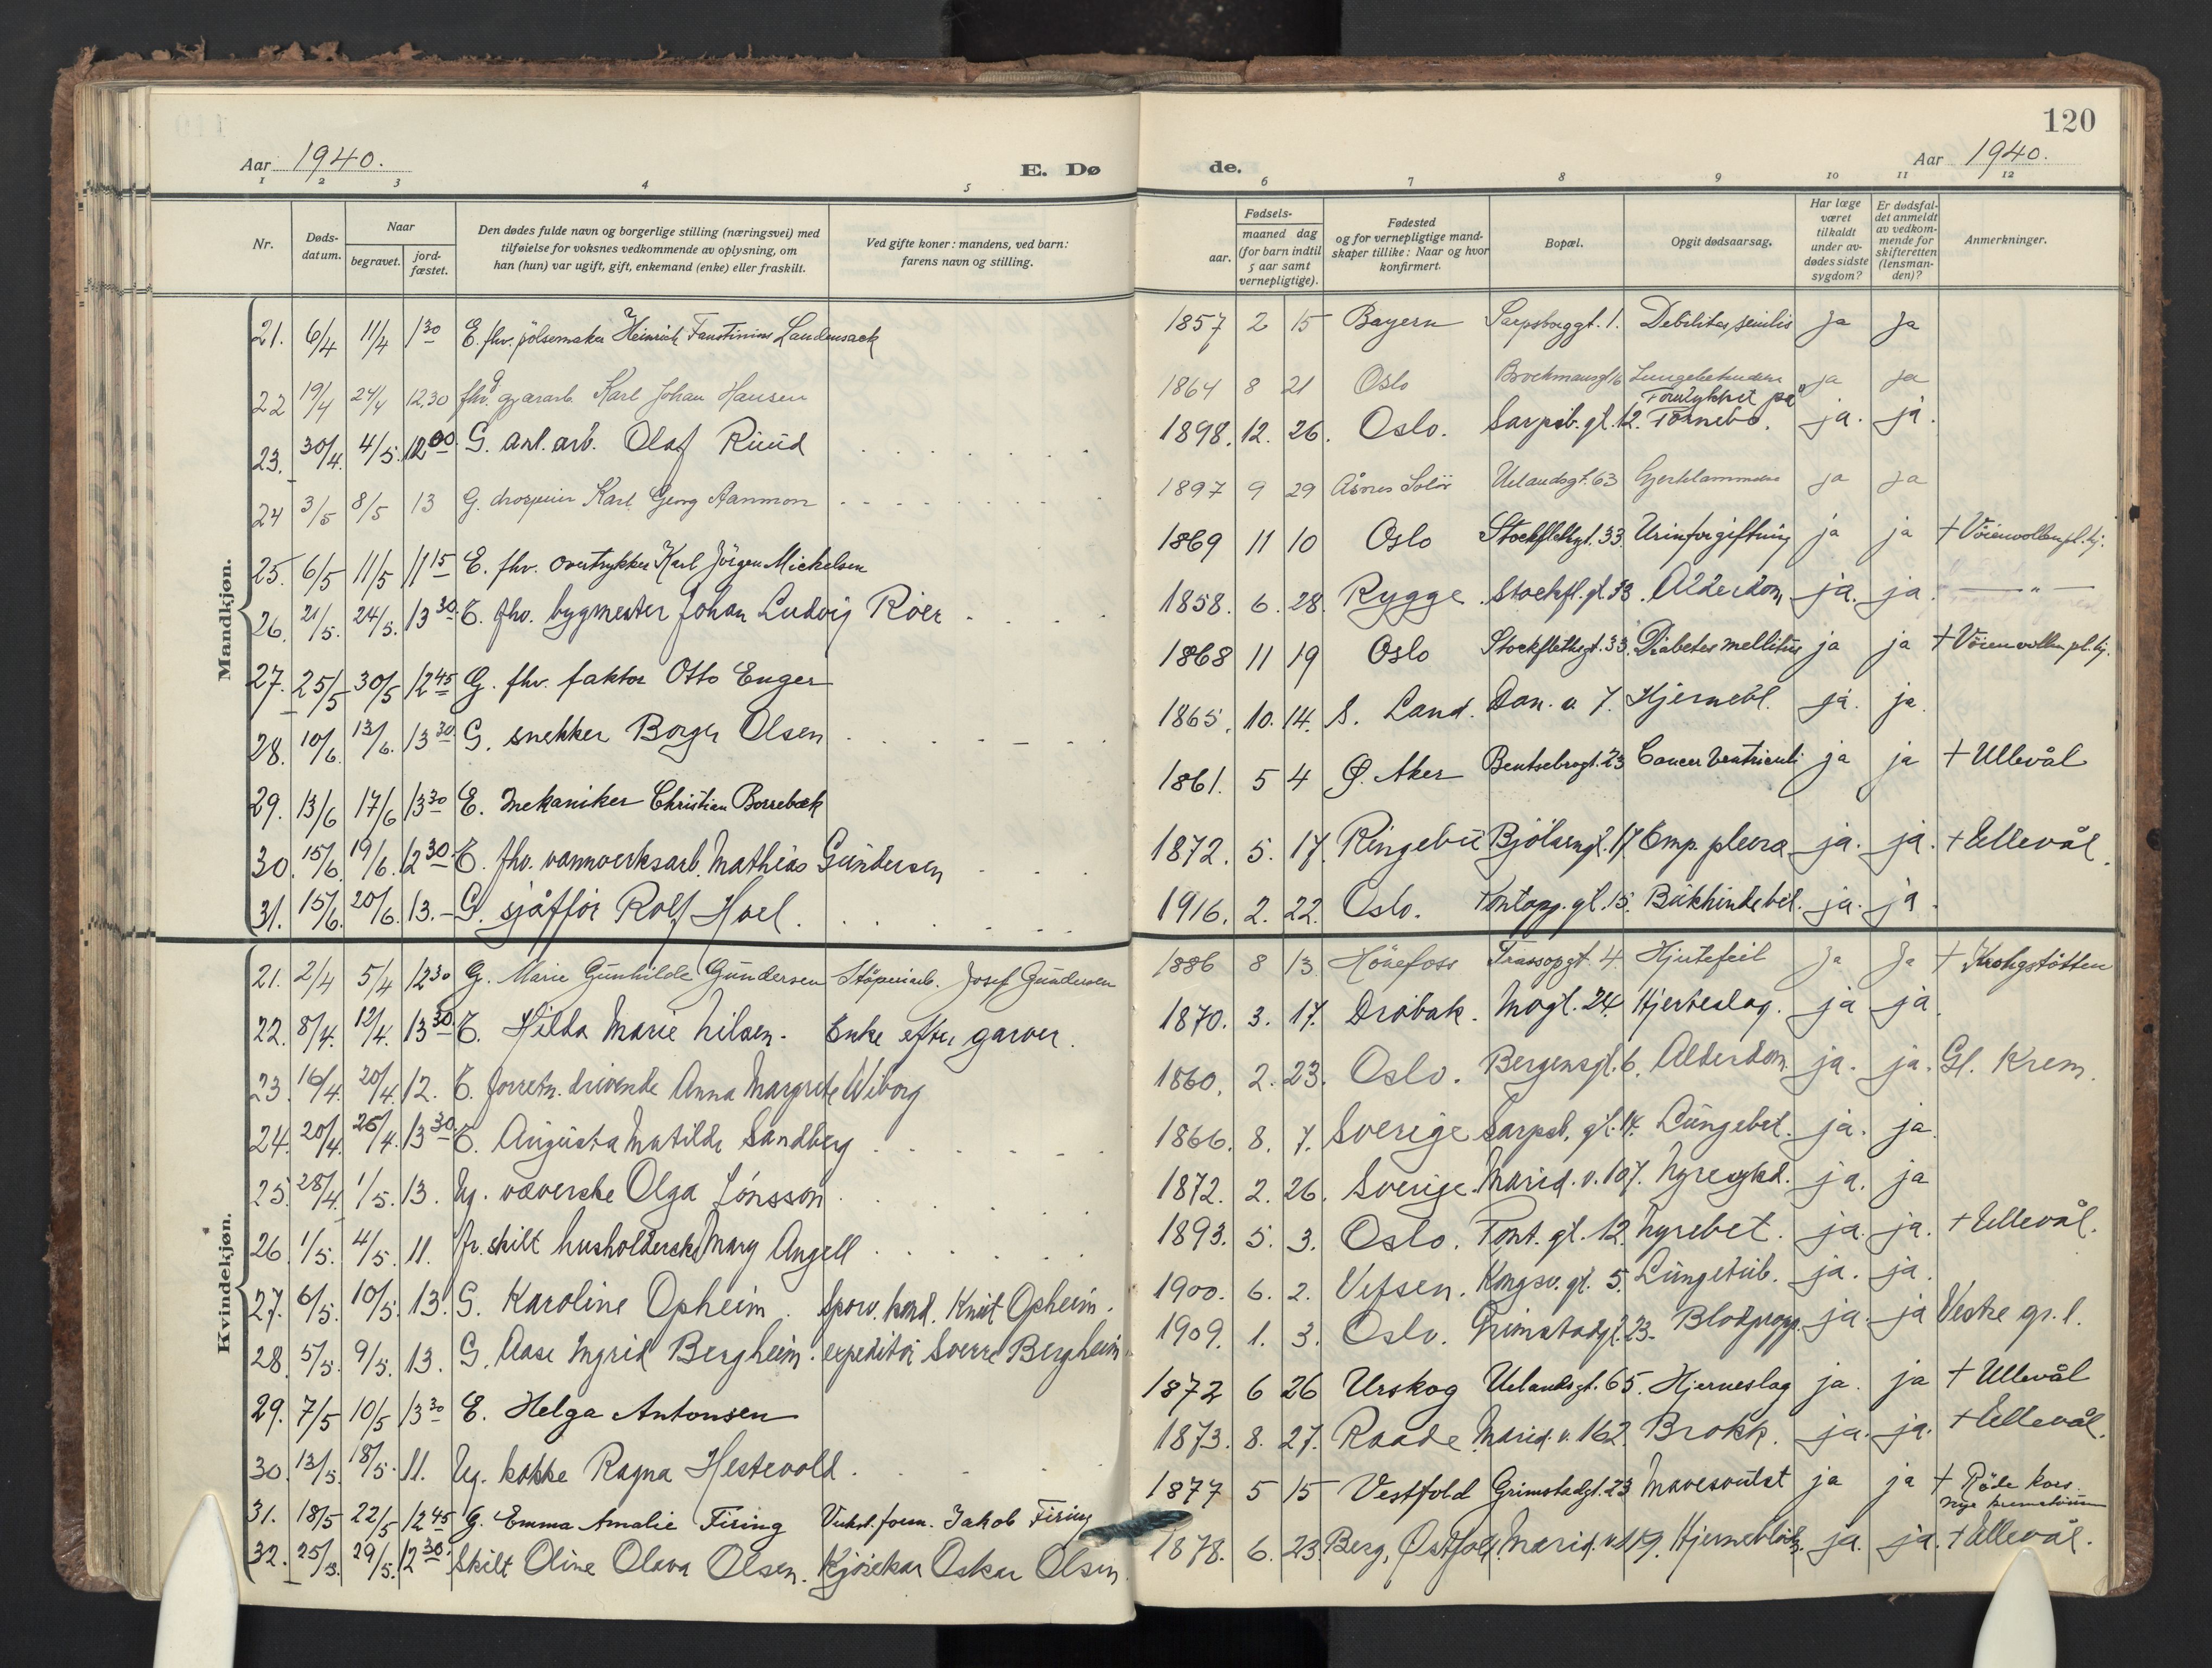 120
Aar 1940.
E. Dø
de.
Aar 1940.
1 2 3 4 5
6 7 8 9 10 11 12
Nr.
Døds-
datum.
Naar
begravet.
jord-
fæstet.
Den dødes fulde navn og borgerlige stilling (næringsvei) med
tilføielse for voksnes vedkommende av oplysning, om
han (hun) var ugift, gift, enkemand (enke) eller fraskilt.
Ved gifte koner: mandens, ved barn:
farens navn og stilling.
Fødsels-
aar.
maaned dag
(for barn indtil
5 aar samt
vernepligtige).
Fødested
og for vernepligtige mand-
skaper tillike: Naar og hvor
konfirmert.
Bopæl.
Opgit dødsaarsag.
Har læge
været
tilkaldt
under av-
dødes sidste
sygdom?
Er dødsfal-
det anmeldt
av vedkom-
mende for
skifteretten
(lensman-
den)?
Anmerkninger.
Mandkjøn.
21. 6/4 11/4 1 30 E. fhv. pølsemaker Heinrich Faustinius Laudensack 1857 2 15 Bayern Sarpsborggt. 1. Debilitas senilis Ja Ja
22 19/4 24/4 12,30 fhv. Karl Johan Hansen 1864 8 21 Oslo ja ja
23. 30/4. 4/5. 12 00. G. anl. arb. Olaf Ruud 1898. 12. 26. Oslo. Sarpsb. gt. 12. Forulykket på Fornebo. ja. ja.
24 3/5 8/5 13 G. Karl Georg Aanmon 1897 9 29 Åsnes Solør Uelandsgt. 63 Hjerklammen ja ja
25. 6/5 11/5 11 15 E. fhv. overtrykker Karl Jörgen Michelsen 1869 11 10 Oslo Stockflethgt. 33 Urinforgiftning ja ja + Vöienvollen pl. hj.
26. 21/5. 24/5. 13 30. E. fhv. bygmester Johan Ludvig Röer 1858. 6. 28. Rygge. Stockfl. gt. 33. Alderdom ja. ja. — " —
27. 25/5 30/5 12 45 G. fhv. faktor Otto Enger 1868 11 19 Oslo Stockflethsgt. 33. Diabetes mellitus ja ja + Vöienvollen pl. hj.
28. 10/6. 13/6. 13 30. G. snekker Borger Olsen 1865. 10. 14. S. Land. Dan. v. 7. Hjernebl. ja. ja.
29. 13/6 17/6 13 30 E. Mekaniker Christian Borrebæk 1861. 5 4 Ø. Aker Bentsebrogt. 23 Cancer Ventriculi ja ja + Ullevål
30. 15/6. 19/6. 12 30 E. fhv. vannverksarb. Mathias Gundersen 1872. 5. 17. Ringebu Bjölsengt. 17. Emp. pleura ja. ja. + Ullevål.
31. 15/6. 20/6. 13. — G. sjåffør Rolf Hoel. 1916. 2. 22. Oslo. Tontopp. gt. 15. Bukhindebet. ja. ja.
Kvindekjøn.
21. 2/4 5/4 12 30 G. Marie Gunhilde Gundersen Stöperiarb. Josef Gundersen 1886 8 13 Hönefoss 4. Hjertefeil Ja Ja + Krohgstötten
22. 8/4. 12/4. 13 30 E. Hilda Marie Nilsen. Enke efter garver. 1870. 3. 17. Dröbak. Mogt. 24. Hjerteslag. ja ja.
23. 16/4. 20/4. 12. E. forretn. drivende Anna Margrete Wiborg 1860. 2. 23. Oslo. Bergensgt. 6. Alderdom. ja. ja. Gl. Krem.
24. 20/4. 26/4. 13 30. E. Augusta Matilde Sandberg 1866. 8. 7. Sverige Sarpsb. gt. 14. Lungebet. ja. ja.
25. 28/4. 1/5. 13. Ug. væverske Olga Jönsson 1872. 2. 26. Sverige. Marid. v. 107. Nyresykd. ja. ja
26. 1/5. 4/5. 11. fr. skilt husholderske Mary Angell 1893. 5. 3. Oslo. Tont. gt. 12. Nyrebet. ja. ja. + Ullevål.
27. 6/5. 10/5. 13. G. Karoline Opheim. Sporv. kond. Knut Opheim. 1900. 6. 2. Vefsen. Kongsv. gt. 5. Lungetub. ja. ja.
28. 5/5. 9/5. 13. G. Aase Ingrid Bergheim. expeditör Sverre Bergheim 1909. 1. 3. Oslo. Grimstadgt. 23. Blodpropp. ja. ja Vestre gr. l.
29. 7/5 10/5 13 30 E. Helga Antonsen 1872 6 26 Urskog Uelandsgt. 65. Hjerneslag ja. ja + Ullevål
30. 13/5. 18/5. 11. Ug. kokke Ragna Hestevold. 1873. 8. 27. Raade. Marid. v. 162. Brokk. ja. ja. + Ullevål.
31. 18/5 22/5 12 45 G. Emma Amalie Firing Verkst. form. Jakob Firing 1877 5 15 Vestfold Grimstadgt. 23 Mavesvulst ja ja + Röde kors nye krematorium
32. 25/5. 29/5. 12 30. Skilt Oline Olava Olsen. Kjörekar Oskar Olsen. 1878. 6. 23. Berg, Østfold. Marid. v. 119. Hjerneblödn. ja. ja. + Ullevål.